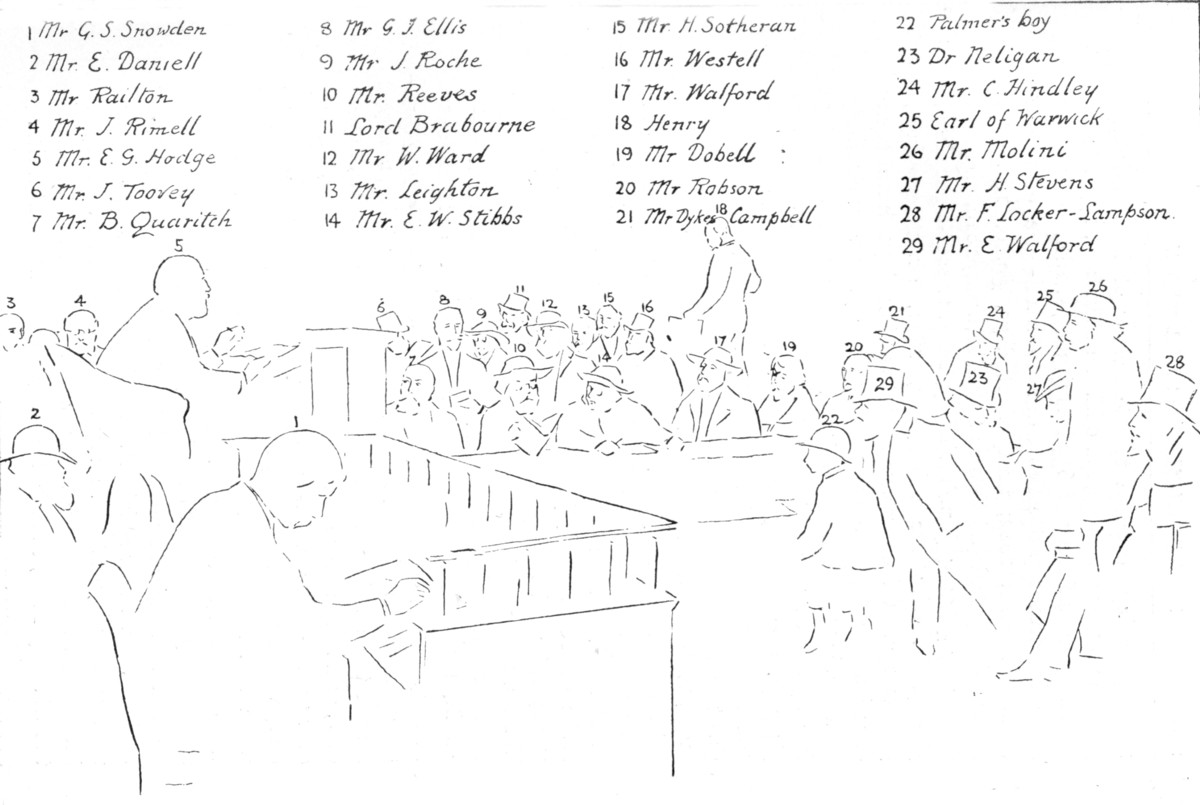 1 Mr G. S. Snowden
2 Mr. E. Daniell
3 Mr Railton
4 Mr. J. Rimell
5 Mr. E. G. Hodge
6 Mr. J. Toovey
7 Mr. B. Quaritch
8 Mr G. I. Ellis
9 Mr J. Roche
10 Mr. Reeves
11 Lord Brabourne
12 Mr W. Ward
13 Mr. Leighton
14 Mr. E. W. Stibbs
15 Mr. H. Sotheran
16 Mr. Westell
17 Mr. Walford
18 Henry
19 Mr Dobell
20 Mr Robson
21 Mr Dykes Campbell
22 Palmer's boy
23 Dr Neligan
24 Mr. C. Hindley
25 Earl of Warwick
26 Mr. Molini
27 Mr. H. Stevens
28 Mr. F. Locker-Lampson.
29 Mr. E. Walford
18
5
3 4 6 8 9 11 12 13 15 16 21 24 25 26
7 10 14 17 19 20 29 23 27 28
2 1 22